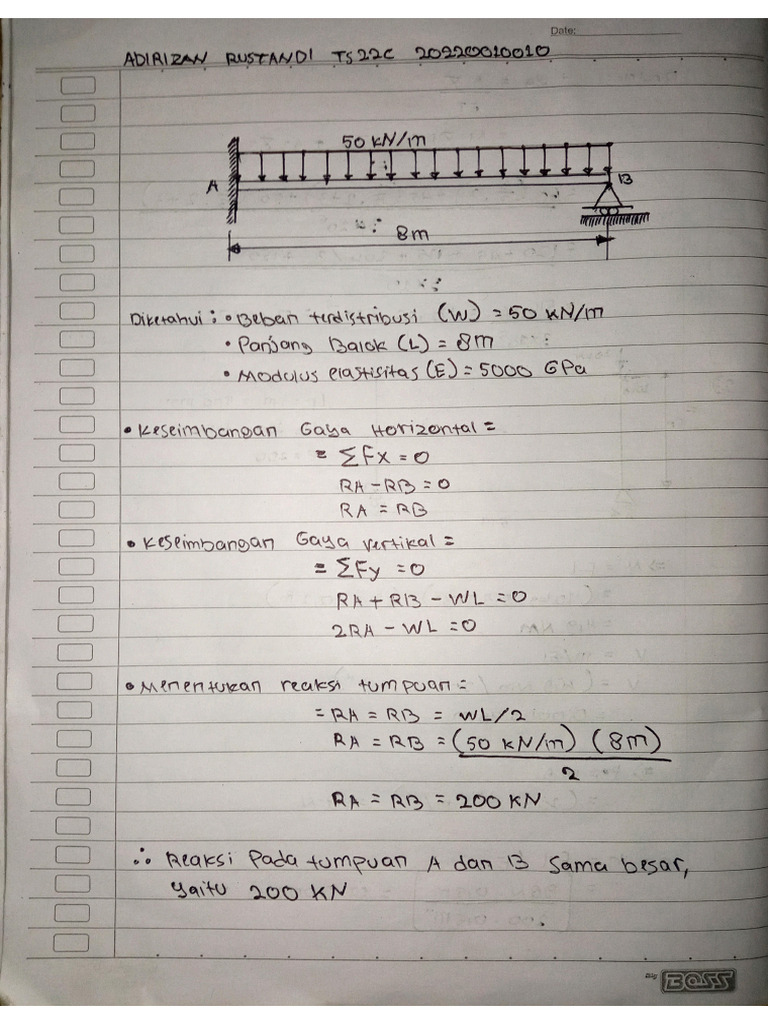 Date:
ADIRIZAN RUSTANDI TS22C 20220010010
50 kN/m
A
B
8m
Diketahui : • Beban terdistribusi (W) = 50 kN/m
• Panjang Balok (L) = 8m
• Modulus elastisitas (E) = 5000 GPa
• Keseimbangan Gaya Horizontal =
= ΣFx = 0
RA - RB = 0
RA = RB
• Keseimbangan Gaya vertikal =
= ΣFy = 0
RA + RB - WL = 0
2RA - WL = 0
• Menentukan reaksi tumpuan =
= RA = RB = WL/2
RA = RB = (50 kN/m) (8m)
2
RA = RB = 200 KN
∴ Reaksi Pada tumpuan A dan B sama besar,
yaitu 200 KN
By BOSS